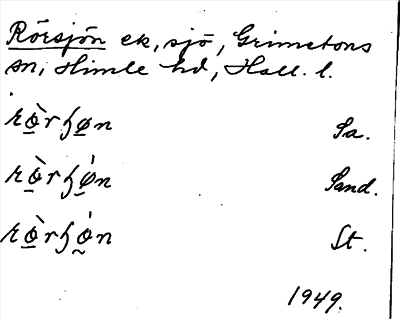 Rörsjön ek, sjö, Grimetons
sn, Himle hd, Hall. l.
rø̠̀rɧø̠n Sa.
rø̠̀rɧǿ̠n Sand.
rø̠̀rɧö̰́n St.
1949.